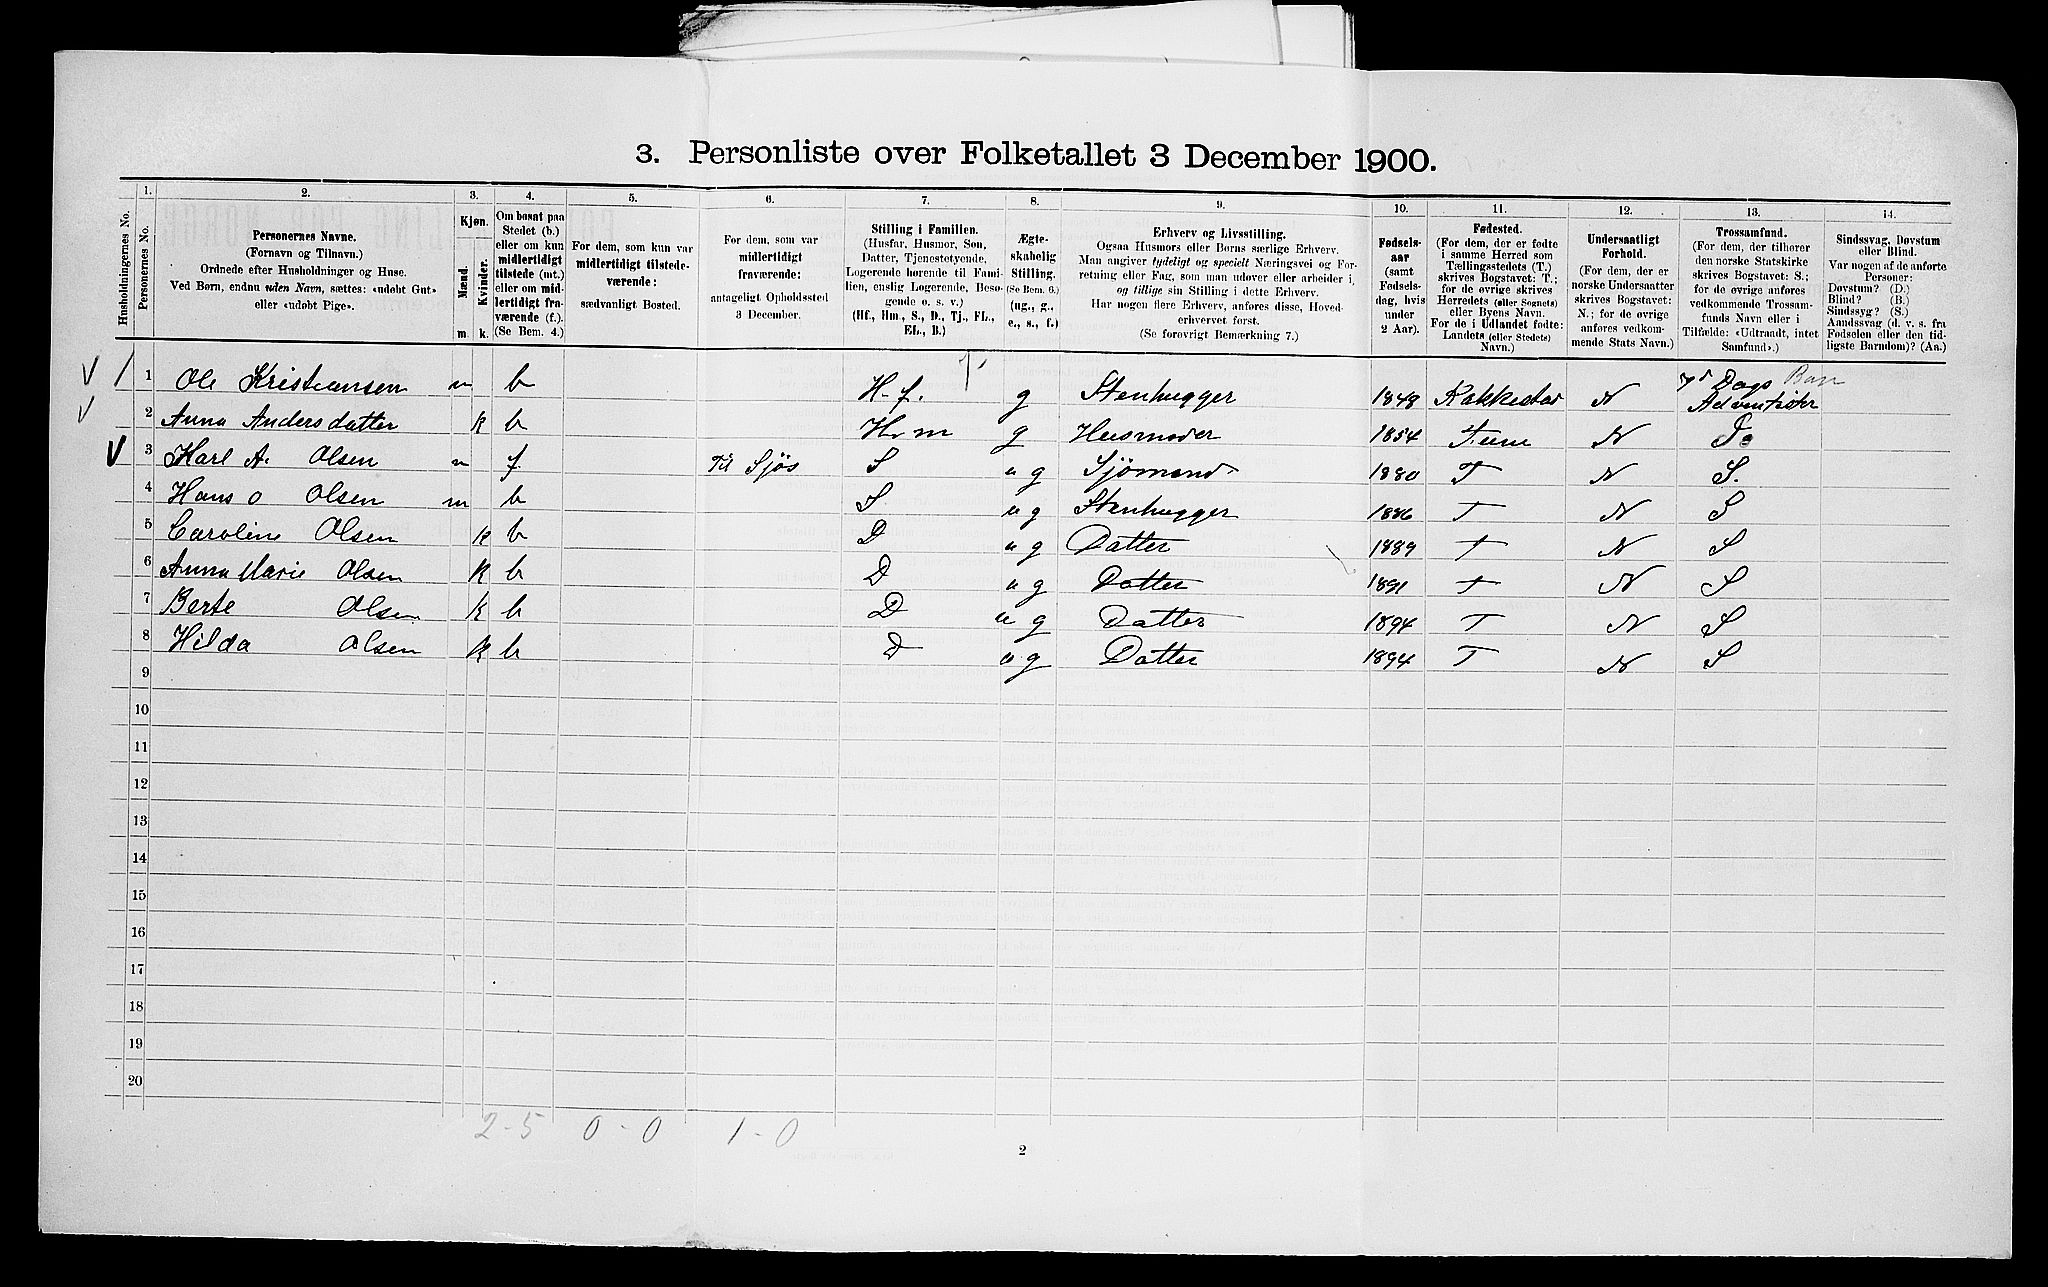 3. Personliste over Folketallet 3 December 1900.
1. 2. 3. 4. 5. 6. 7. 8. 9. 10. 11. 12. 13. 14.
Husholdningernes No.
Personernes No.
Personernes Navne.
(Fornavn og Tilnavn.)
Ordnede efter Husholdninger og Huse.
Ved Børn, endnu uden Navn, sættes: «udøbt Gut»
eller «udøbt Pige».
Kjøn.
Mænd.
Kvinder.
m. k.
Om bosat paa
Stedet (b.)
eller om kun
midlertidigt
tilstede (mt.)
eller om mid-
lertidigt fra-
værende (f.).
(Se Bem. 4.)
For dem, som kun var
midlertidigt tilstede-
værende:
sædvanligt Bosted.
For dem, som var
midlertidigt
fraværende:
antageligt Opholdssted
3 December.
Stilling i Familien.
(Husfar, Husmor, Søn,
Datter, Tjenestetyende,
Logerende hørende til Fami-
lien, enslig Logerende, Besø-
gende o. s. v.)
(Hf., Hm., S., D., Tj., FL.,
EL., B.)
Ægte-
skabelig
Stilling.
(Se Bem. 6.)
(ug., g.,
e., s., f.)
Erhverv og Livsstilling.
Ogsaa Husmors eller Børns særlige Erhverv.
Man angiver tydeligt og specielt Næringsvei og For-
retning eller Fag, som man udøver eller arbeider i,
og tillige sin Stilling i dette Erhverv.
Har nogen flere Erhverv, anføres disse, Hoved-
erhvervet først.
(Se forøvrigt Bemærkning 7.)
Fødsels-
aar
(samt
Fødsels-
dag, hvis
under
2 Aar).
Fødested.
(For dem, der er fødte
i samme Herred som
Tællingsstedets (T.)
skrives Bogstavet: T.;
for de øvrige skrives
Herredets (eller Sognets)
eller Byens Navn.
For de i Udlandet fødte:
Landets (eller Stedets)
Navn.)
Undersaatligt
Forhold.
(For dem, der er
norske Undersaatter
skrives Bogstavet:
N.; for de øvrige
anføres vedkom-
mende Stats Navn.)
Trossamfund.
(For dem, der tilhører
den norske Statskirke
skrives Bogstavet: S.;
for de øvrige anføres
vedkommende Trossam-
funds Navn eller i
Tilfælde: «Udtraadt, intet
Samfund».)
Sindssvag, Døvstum
eller Blind.
Var nogen af de anførte
Personer:
Døvstum? (D.)
Blind? (B.)
Sindssyg? (S.)
Aandssvag (d. v. s. fra
Fødselen eller den tid-
ligste Barndom)? (Aa.)
1 Ole Kristiansen m b H.f. g Stenhugger 1848 Rakkestad N 7d Dags Adventister
2 Anna Andersdatter K b Hm g Husmoder 1854 Tune N Do
3 Karl A. Olsen m f. Til Sjøs S ug Sjømand 1880 T N S.
4 Hans O Olsen m b S ug Stenhugger 1886 T N S
5 Caroline Olsen K b D ug Datter 1889 T N S
6 Anna Marie Olsen K b D ug Datter 1891 T N S
7 Berte Olsen K b D ug Datter 1894 T N S
8 Hilda Olsen K b D ug Datter 1894 T N S
9
10
11
12
13
14
15
16
17
18
19
20
2-5 0-0 1-0
2